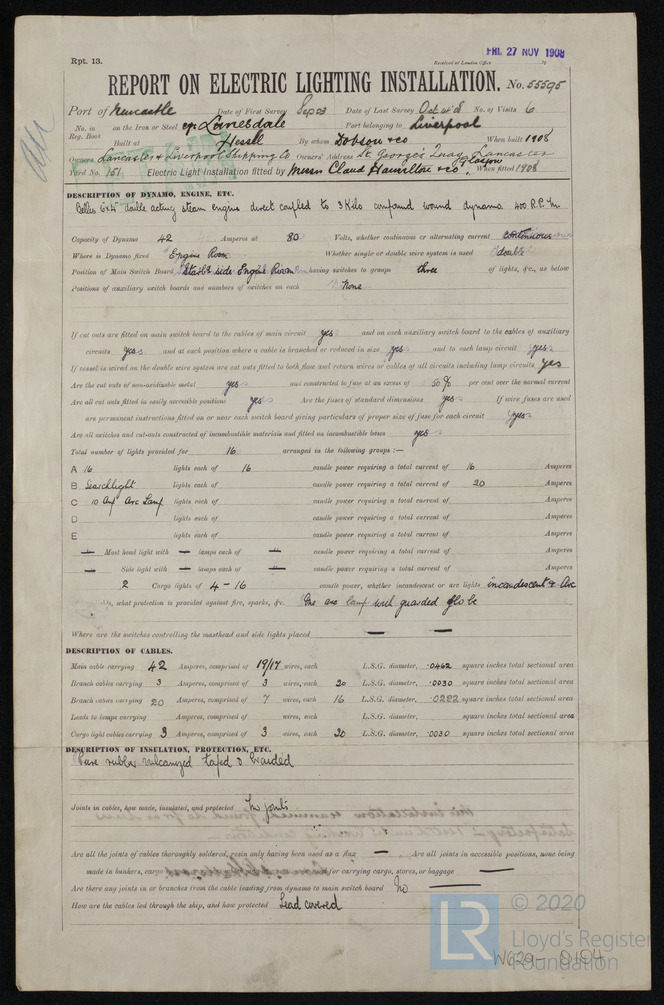 FRI. 27 NOV 1908
Rpt. 13.
Received at London Office
REPORT ON ELECTRIC LIGHTING INSTALLATION. No. 55595
Port of Newcastle Date of First Survey Sep 23 Date of Last Survey Oct No. of Visits 6
No. in Reg. Book on the Iron or Steel Port belonging to Liverpool
Built at Hessle By whom Dobson & co When built 1908
Owners Lancaster & Liverpool Shipping Co Owners' Address St. George's Quay, Lancaster
Yard No. 151 Electric Light Installation fitted by Messrs Claud Hamilton & co, Glasgow When fitted 1908
DESCRIPTION OF DYNAMO, ENGINE, ETC.
6x5 double acting steam engine direct coupled to 3 Kilo compound wound dynamo. 400 R.P.M.
Capacity of Dynamo 42 Amperes at 80 Volts, whether continuous or alternating current continuous
Where is Dynamo fixed Engine Room Whether single or double wire system is used double
Position of Main Switch Board Starb'd side Engine Room having switches to groups three of lights, &c., as below
Positions of auxiliary switch boards and numbers of switches on each None
If cut outs are fitted on main switch board to the cables of main circuit yes and on each auxiliary switch board to the cables of auxiliary
circuits yes and at each position where a cable is branched or reduced in size yes and to each lamp circuit yes
If vessel is wired on the double wire system are cut outs fitted to both flow and return wires or cables of all circuits including lamp circuits yes
Are the cut outs of non-oxidizable metal yes and constructed to fuse at an excess of 50% per cent over the normal current
Are all cut outs fitted in easily accessible positions yes Are the fuses of standard dimensions yes If wire fuses are used
are permanent instructions fitted on or near each switch board giving particulars of proper size of fuse for each circuit yes
Are all switches and cut-outs constructed of incombustible materials and fitted on incombustible bases yes
Total number of lights provided for 16 arranged in the following groups :—
A 16 lights each of 16 candle power requiring a total current of 16 Amperes
B Searchlight lights each of candle power requiring a total current of 20 Amperes
C 10 Amp Arc Lamp lights each of candle power requiring a total current of Amperes
D lights each of candle power requiring a total current of Amperes
E lights each of candle power requiring a total current of Amperes
— Mast head light with — lamps each of — candle power requiring a total current of Amperes
— Side light with — lamps each of — candle power requiring a total current of Amperes
2 Cargo lights of 4 - 16 candle power, whether incandescent or arc lights incandescent & Arc
what protection is provided against fire, sparks, &c. One arc lamp with guarded globe
Where are the switches controlling the masthead and side lights placed — —
DESCRIPTION OF CABLES.
Main cable carrying 42 Amperes, comprised of 19/17 wires, each L.S.G. diameter, .0462 square inches total sectional area
Branch cables carrying 3 Amperes, comprised of 3 wires, each 20 L.S.G. diameter, .0030 square inches total sectional area
Branch cables carrying 20 Amperes, comprised of 7 wires, each 16 L.S.G. diameter, .0222 square inches total sectional area
Leads to lamps carrying Amperes, comprised of wires, each L.S.G. diameter, square inches total sectional area
Cargo light cables carrying 3 Amperes, comprised of 3 wires, each 20 L.S.G. diameter, .0030 square inches total sectional area
DESCRIPTION OF INSULATION, PROTECTION, ETC.
Pure rubber vulcanized taped & braided
Joints in cables, how made, insulated, and protected No joints
Are all the joints of cables thoroughly soldered, resin only having been used as a flux — Are all joints in accessible positions, none being
made in bunkers, cargo for carrying cargo, stores, or baggage —
Are there any joints in or branches from the cable leading from dynamo to main switch board No —
How are the cables led through the ship, and how protected Lead covered
LR
© 2020
Lloyd's Register
Foundation
W629-0104